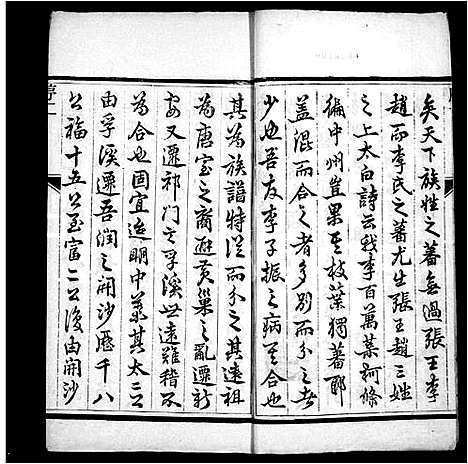 矣天下族姓之蕃無過張王李
趙而李氏之蕃尤在張王趙三姓
之上太白詩云我李百萬葉柯條
徧中州豈果其枝葉獨蕃耶
蓋混而合之者多別而分之者
少也吾友李子振之病其合也
其為族譜特從而分之其遠祖
為唐室之裔避黃巢之亂遷新
安又遷祁門之孚溪世遠難稽不
為合也固宜迨明中葉其太二公
由孚溪遷吾潤之開沙歷千八
公福十五公至富二公復由開沙
序
序二